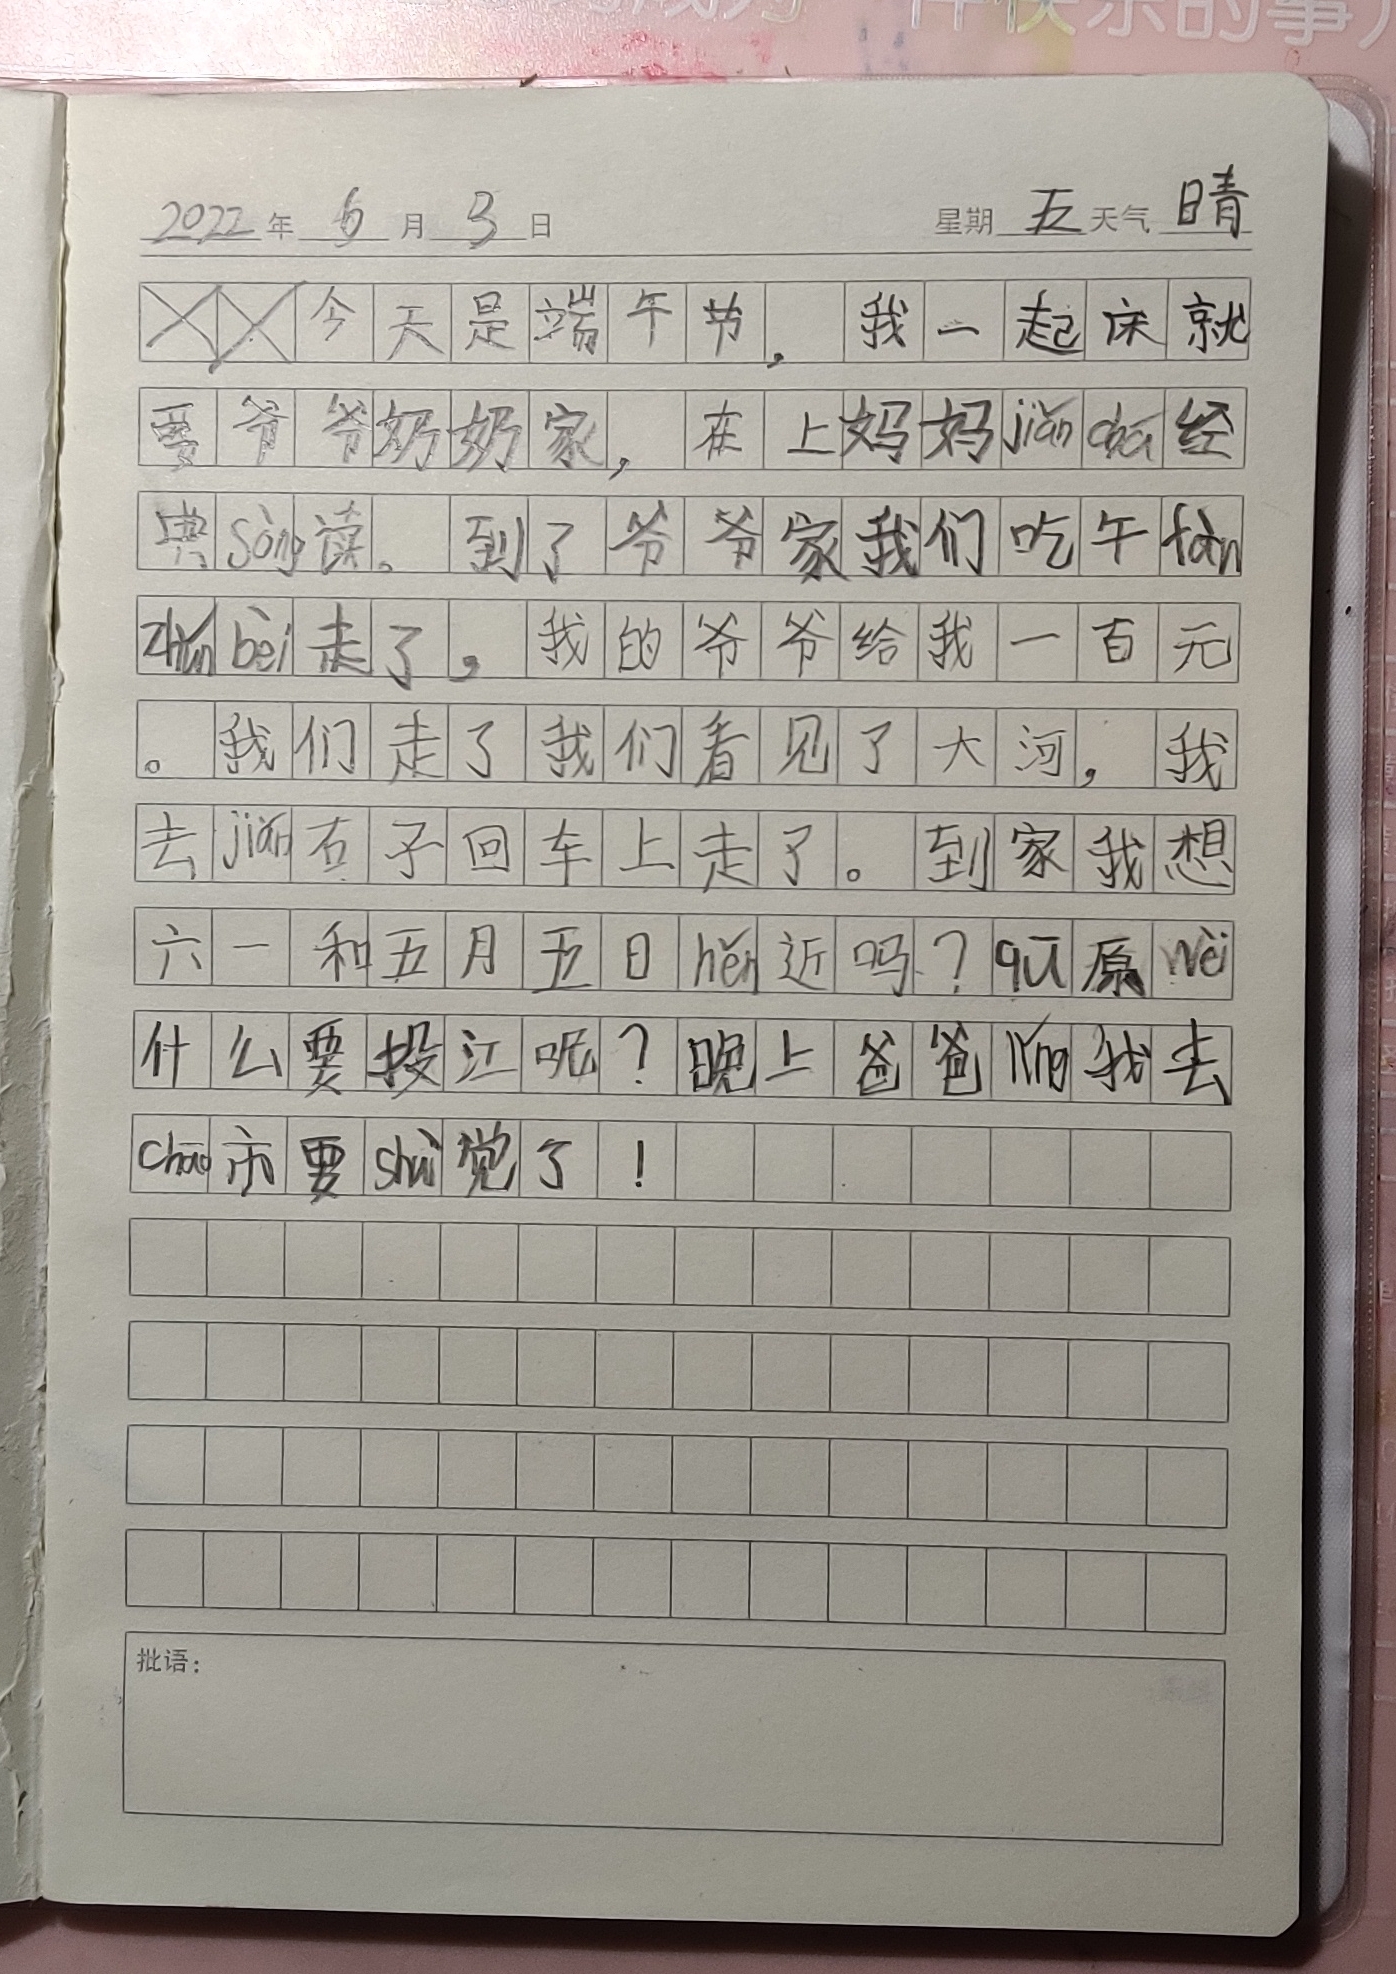 件快乐的事
2022年 6月 3日 星期 五 天气 晴
今天是端午节,我一起床就
要爷爷奶奶家,在上妈妈jiǎn chá经
典sòng读。到了爷爷家我们吃午fàn
zhǔn bèi走了,我的爷爷给我一百元
。我们走了我们看见了大河,我
去jiǎn石子回车上走了。到家我想
六一和五月五日hěn近吗?qū原wèi
什么要投江呢?晚上爸爸lǐng我去
chāo市要shuì觉了!
批语: